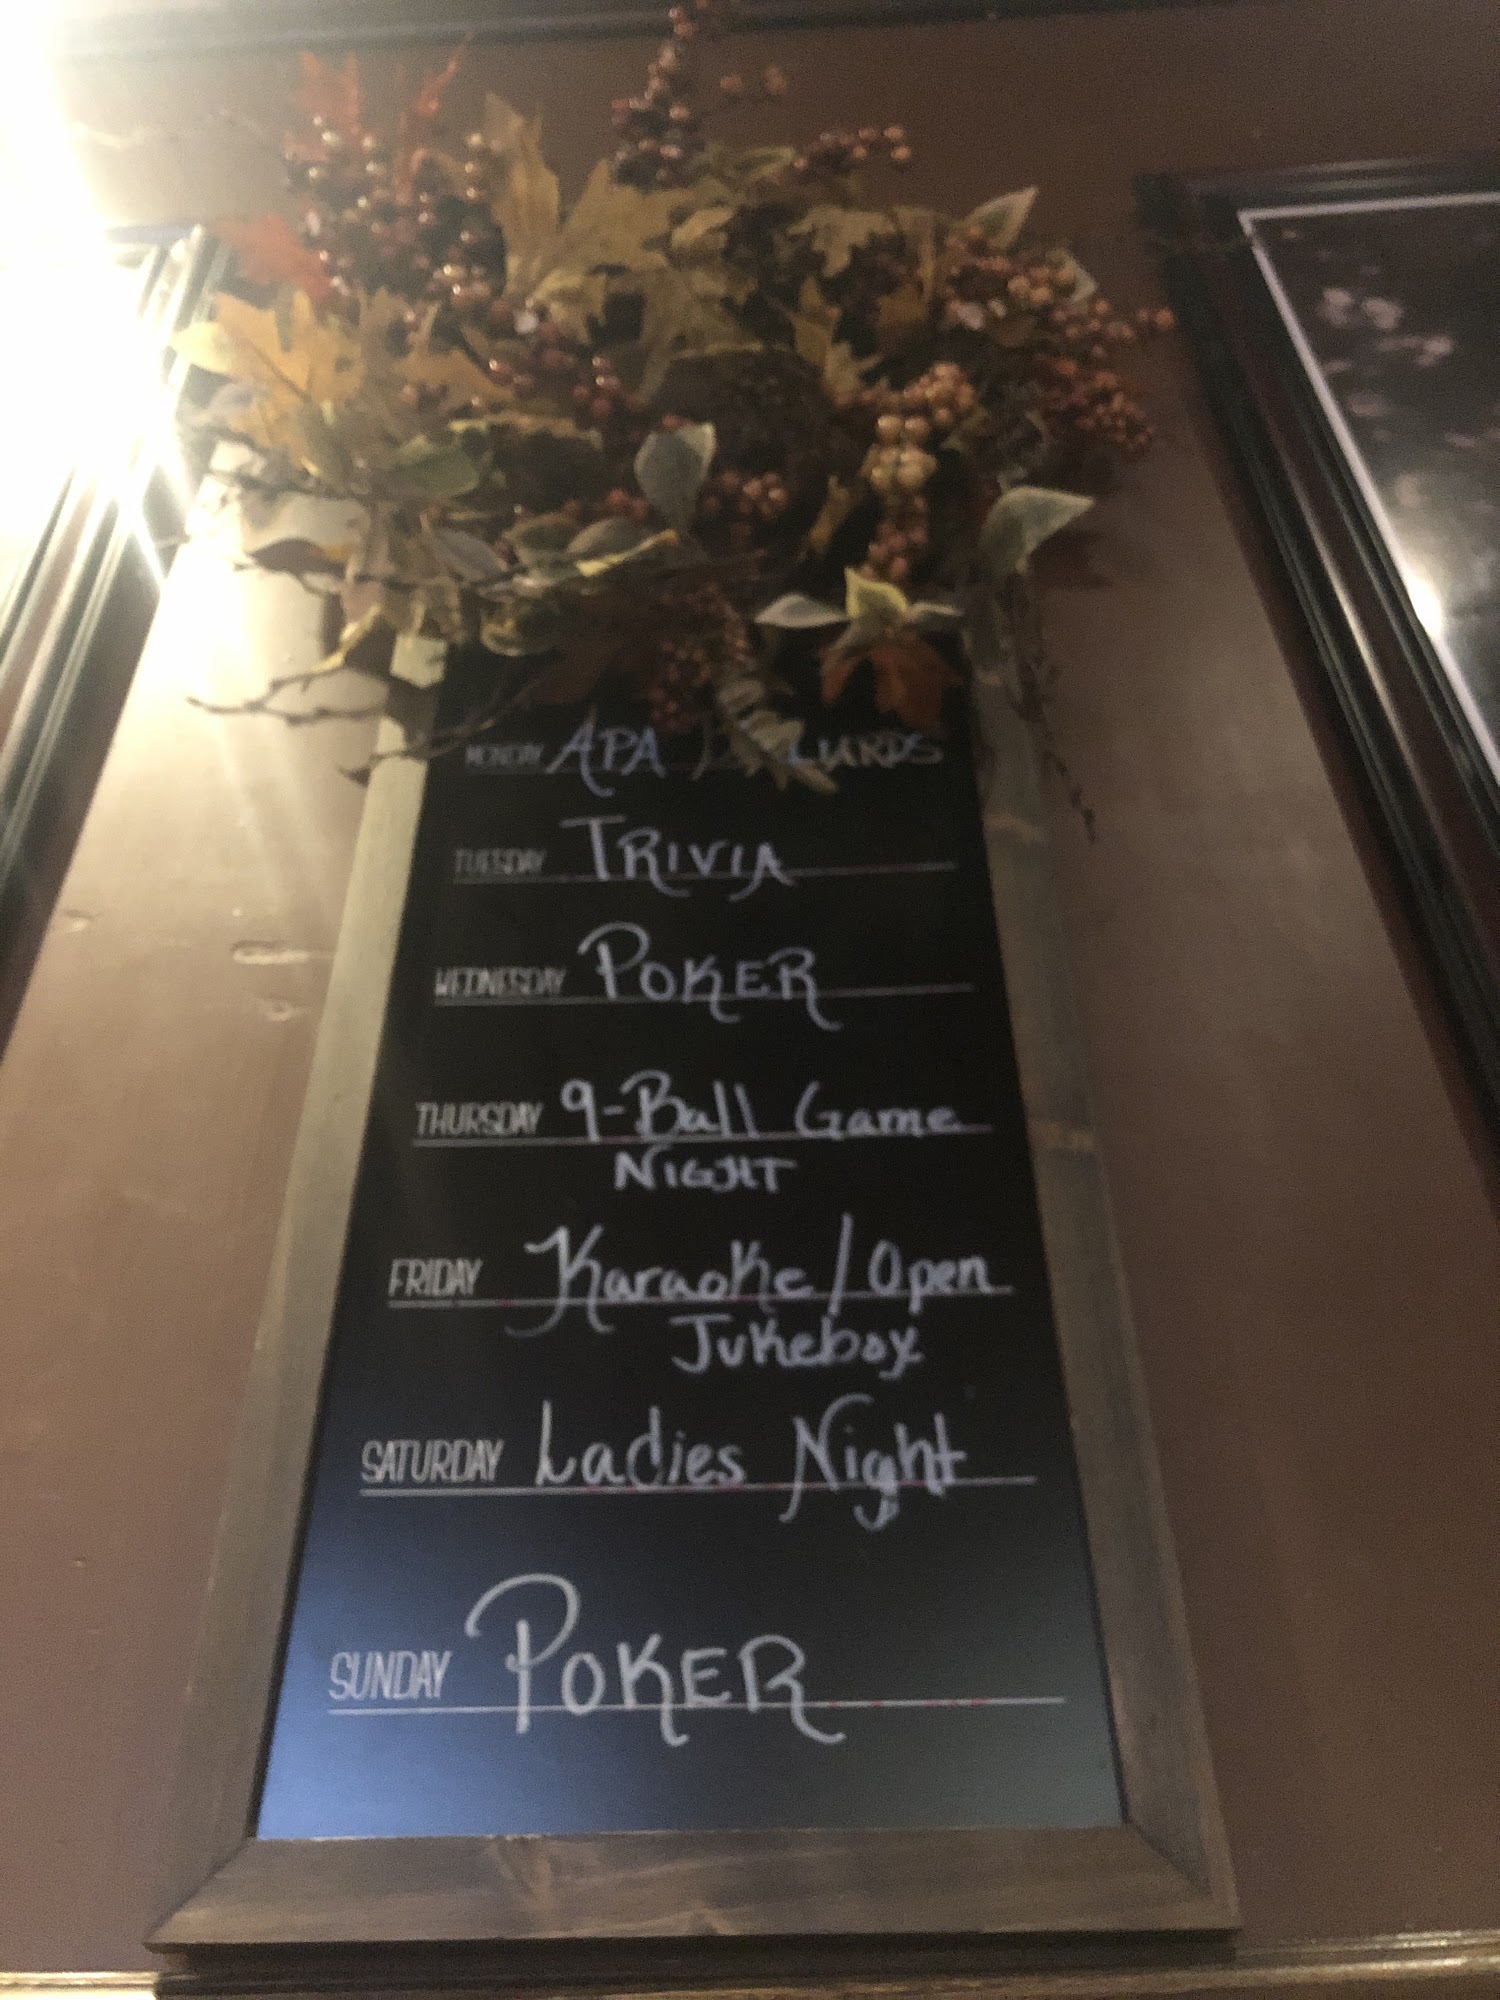 MONDAY APA
TUESDAY TRIVIA
WEDNESDAY POKER
THURSDAY 9-Ball Game
NIGHT
FRIDAY Karaoke/Open
Jukebox
SATURDAY Ladies Night
SUNDAY POKER